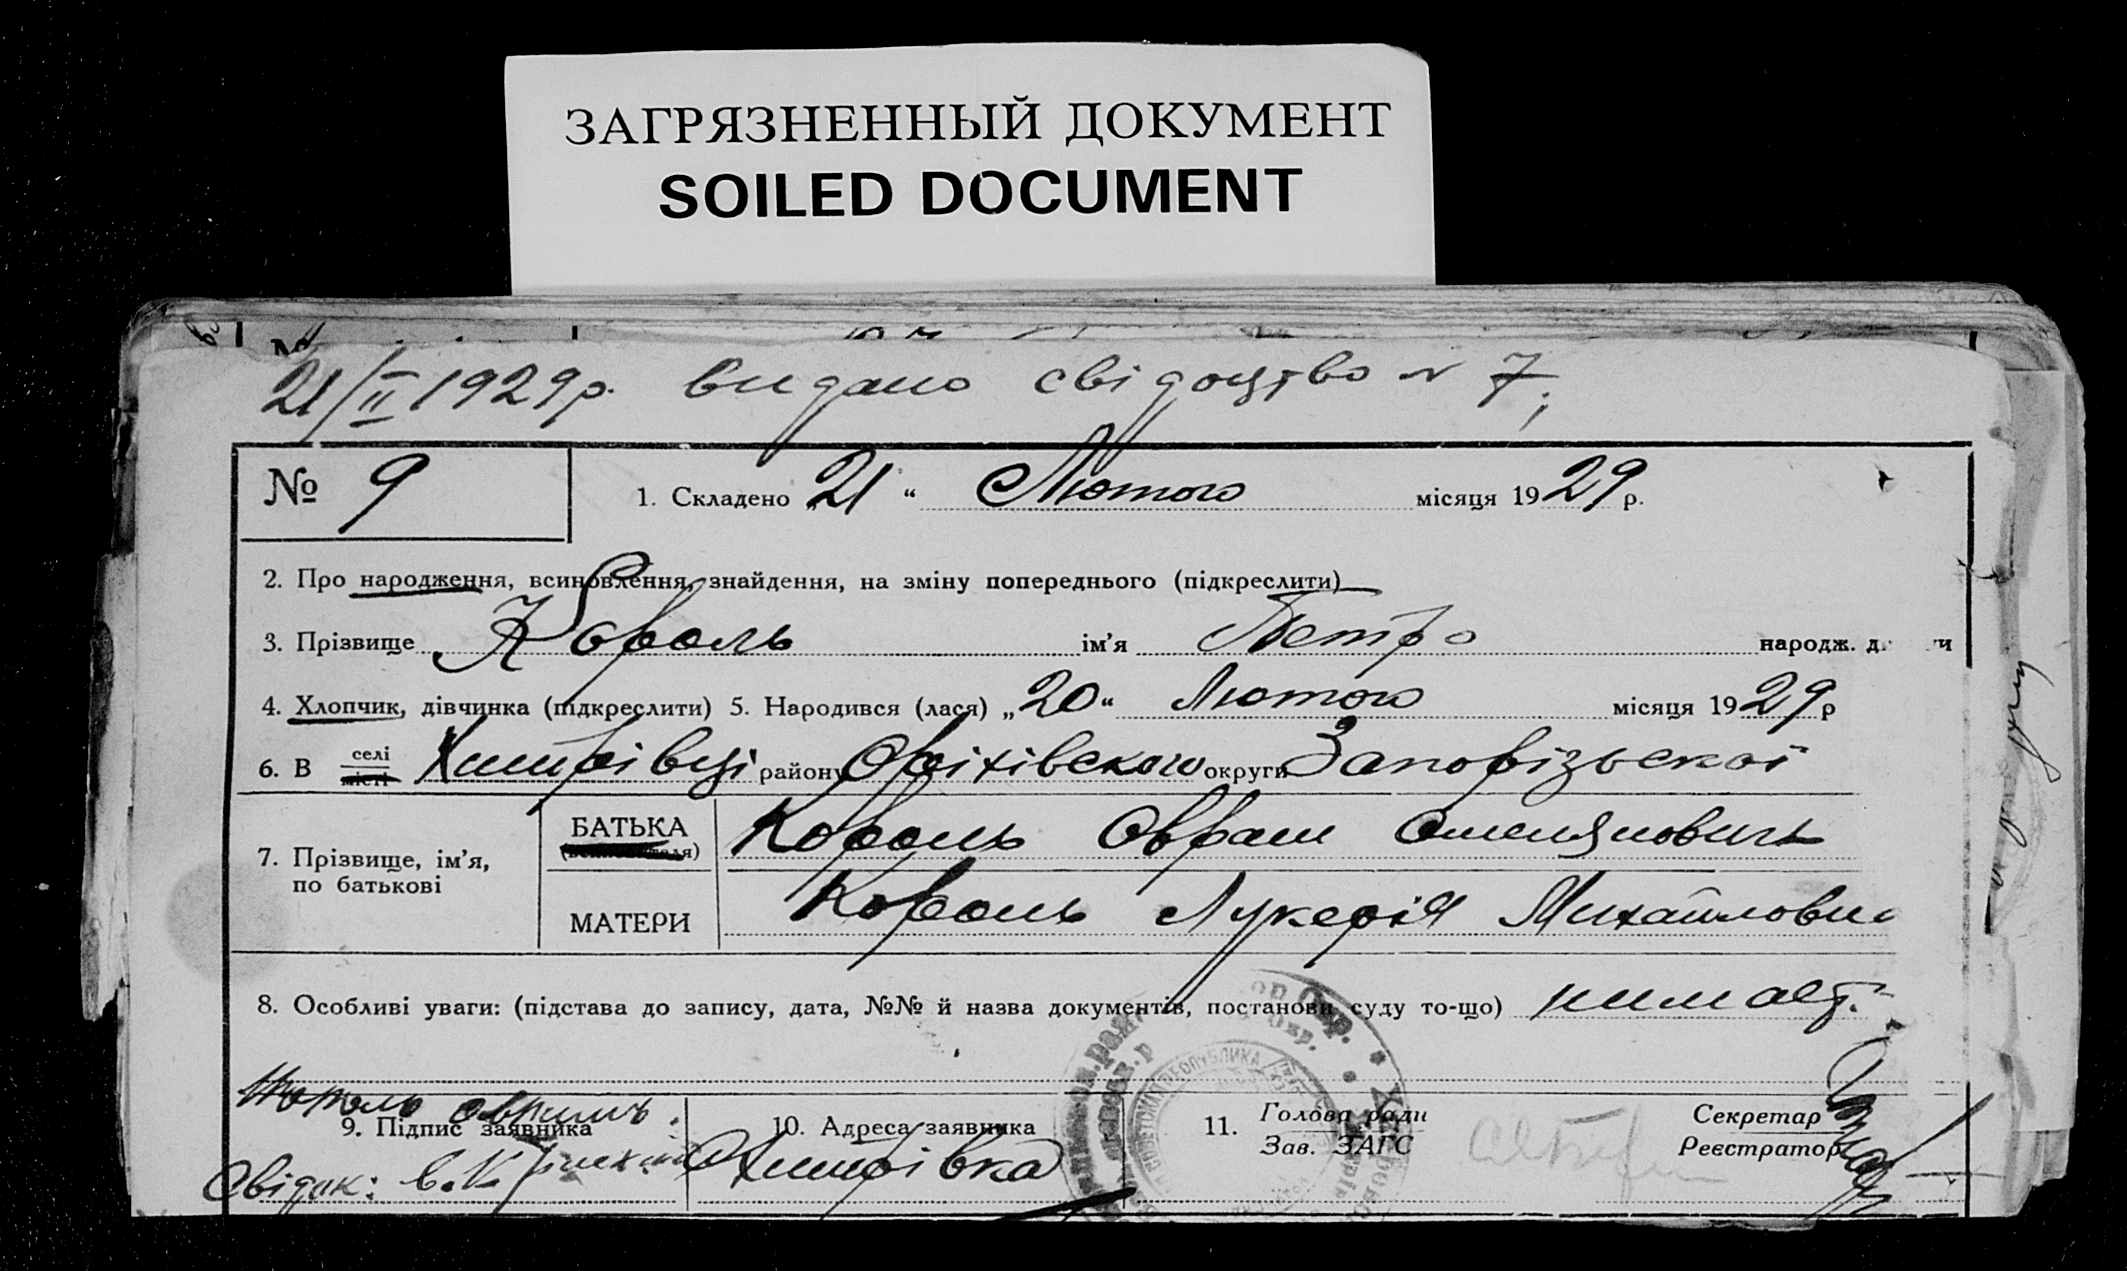 ЗАГРЯЗНЕННЫЙ ДОКУМЕНТ
SOILED DOCUMENT
21/II 1929р. видано свідоцтво N 7;
№ 9
1. Складено „21“ Лютого місяця 1929 р.
2. Про народження, всиновлення, знайдення, на зміну попереднього (підкреслити)
3. Прізвище Король ім'я Петро народж.
4. Хлопчик, дівчинка (підкреслити) 5. Народився (лася) „20“ Лютого місяця 1929 р
6. В селі місті Хитрівці району Оріхівского округи Запорізьскої
7. Прізвище, ім'я, по батькові
БАТЬКА Король Оврам Омелянович
МАТЕРИ Король Лукерія Михайлови
8. Особливі уваги: (підстава до запису, дата, №№ й назва документів, постанови суду то-що)
Король
9. Підпис заявника
Свідок:
10. Адреса заявника
Хитрівка
11. Голова ради
Зав. ЗАГС
Секретар
Реєстратор